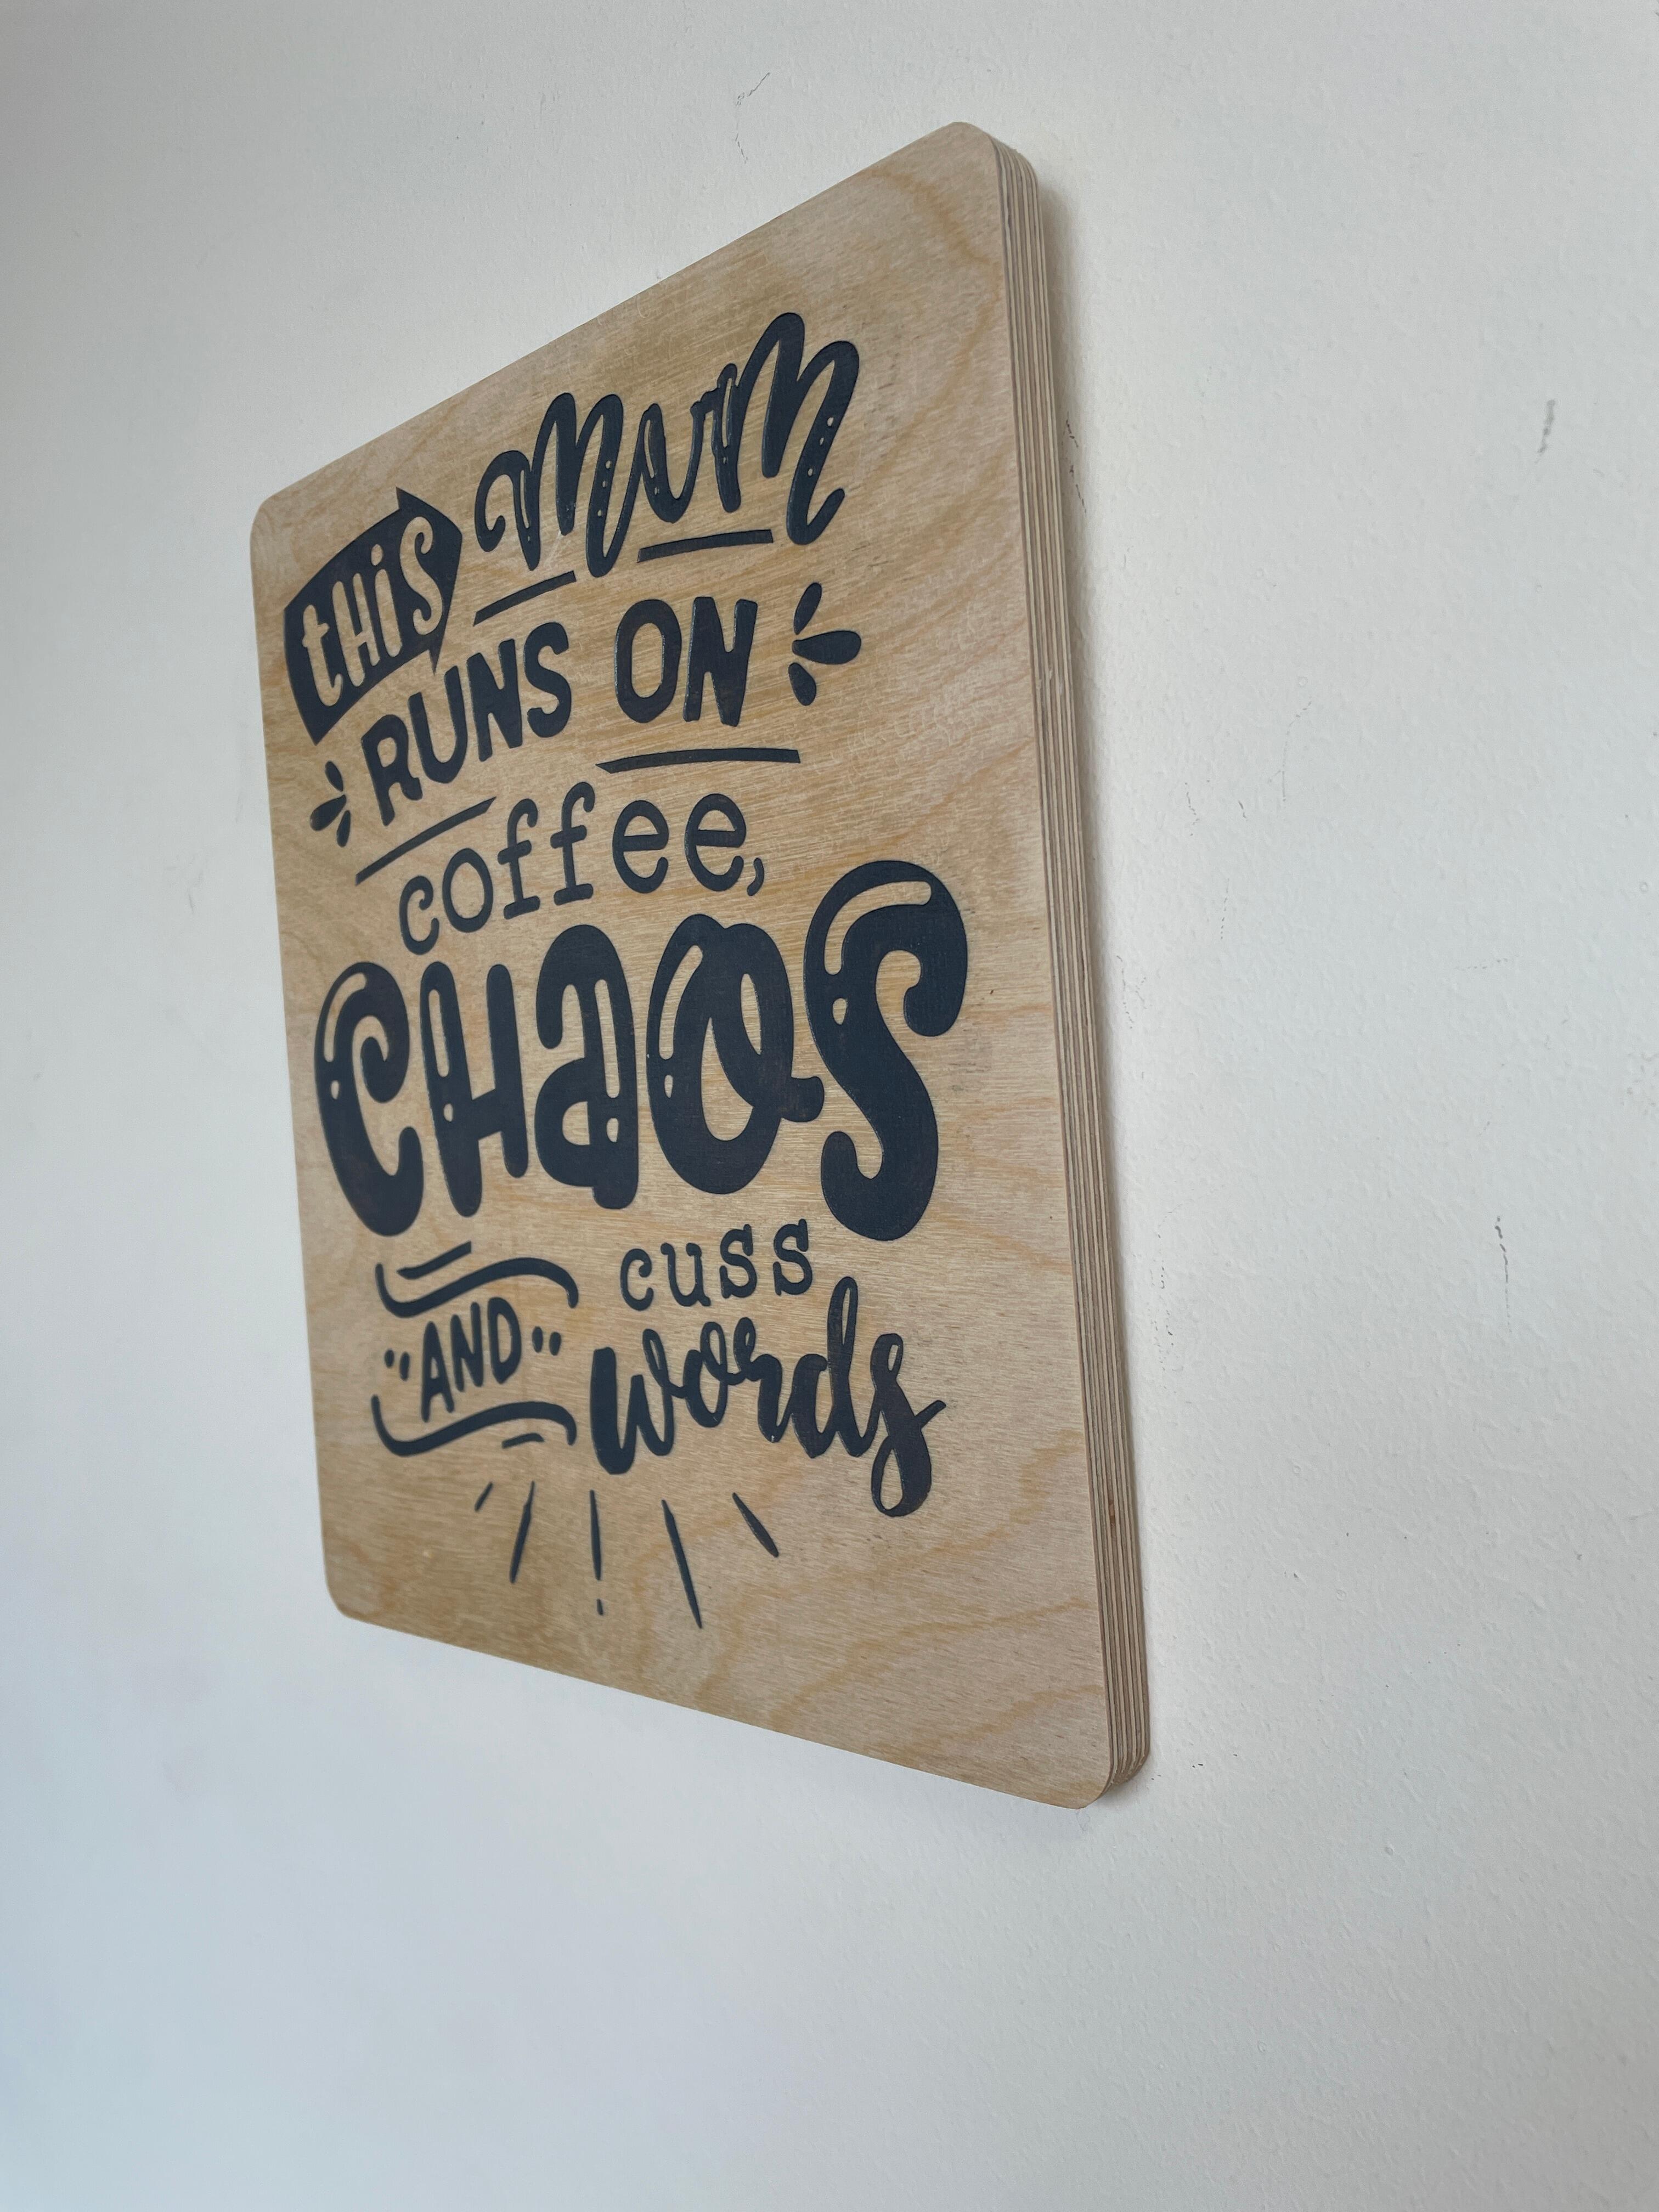 this mum
RUNS ON
coffee,
CHaOS
"AND" cuss
words